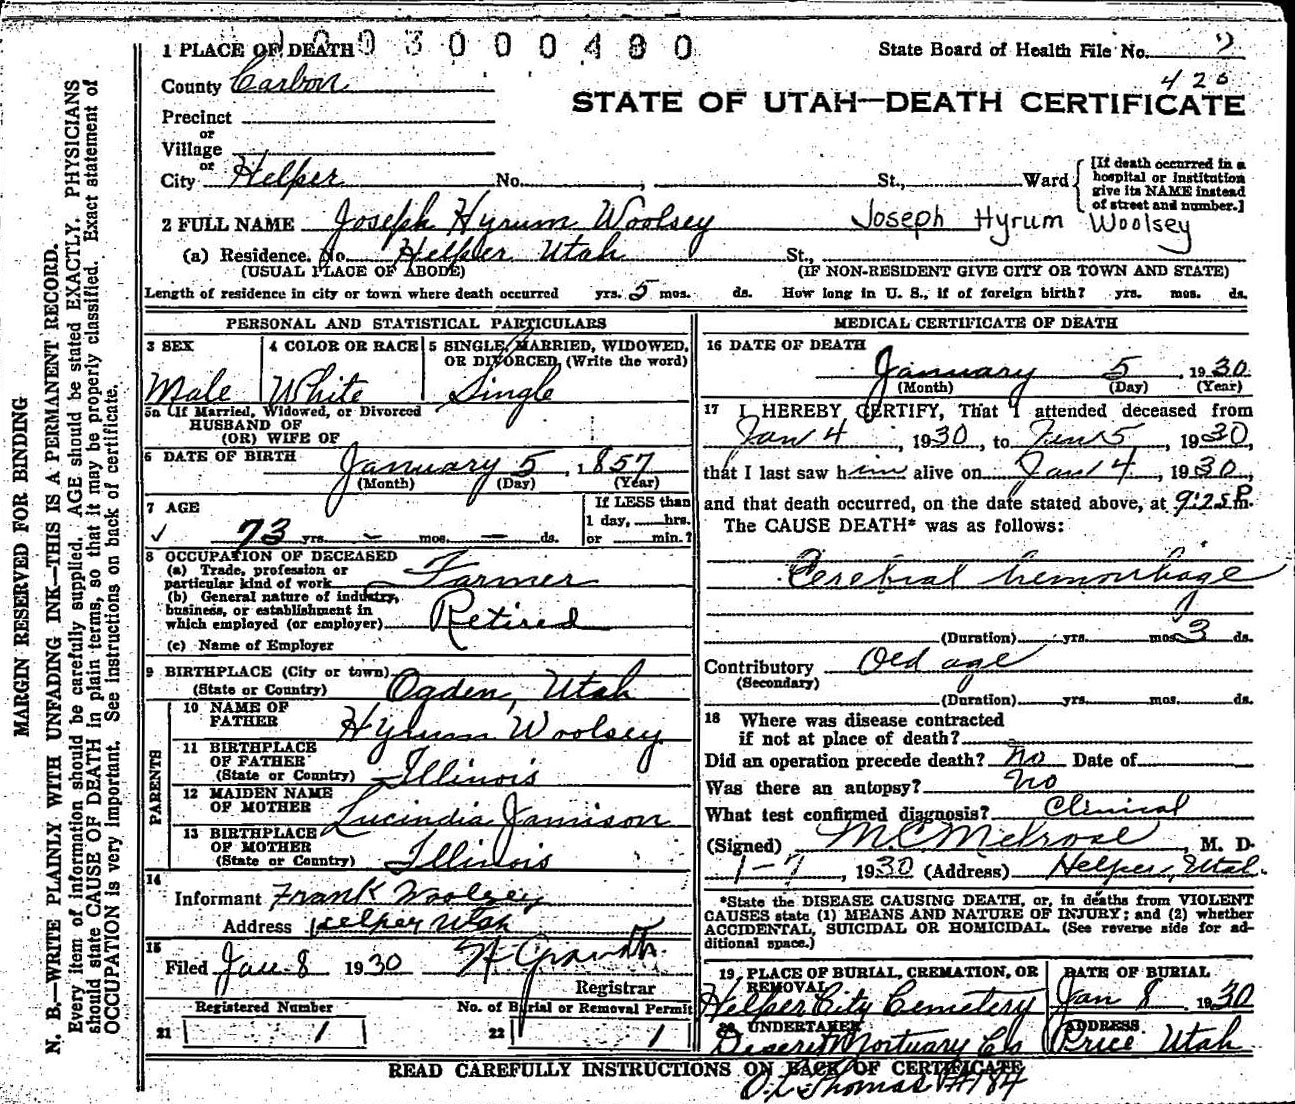 MARGIN RESERVED FOR BINDING
N. B.—WRITE PLAINLY WITH UNFADING INK—THIS IS A PERMANENT RECORD.
Every item of information should be carefully supplied. AGE should be stated EXACTLY. PHYSICIANS
should state CAUSE OF DEATH in plain terms, so that it may be properly classified. Exact statement of
OCCUPATION is very important. See instructions on back of certificate.
1 PLACE OF DEATH 3 0 0 0 4 8 0 State Board of Health File No. 2
County Carbon 426
STATE OF UTAH—DEATH CERTIFICATE
Precinct
or
Village
or
City Helper No. , St., Ward
[If death occurred in a
hospital or institution
give its NAME instead
of street and number.]
2 FULL NAME Joseph Hyrum Woolsey Joseph Hyrum Woolsey
(a) Residence. No. Helper Utah St.,
(USUAL PLACE OF ABODE) (IF NON-RESIDENT GIVE CITY OR TOWN AND STATE)
Length of residence in city or town where death occurred yrs. 5 mos. ds. How long in U. S., if of foreign birth? yrs. mos. ds.
PERSONAL AND STATISTICAL PARTICULARS
3 SEX 4 COLOR OR RACE 5 SINGLE, MARRIED, WIDOWED,
OR DIVORCED, (Write the word)
Male White Single
5a If Married, Widowed, or Divorced
HUSBAND OF
(OR) WIFE OF
6 DATE OF BIRTH January 5, 1857
(Month) (Day) (Year)
7 AGE If LESS than
1 day, hrs.
73 yrs. – mos. – ds. or min.?
8 OCCUPATION OF DECEASED
(a) Trade, profession or
particular kind of work Farmer
(b) General nature of industry,
business, or establishment in
which employed (or employer) Retired
(c) Name of Employer
9 BIRTHPLACE (City or town)
(State or Country) Ogden, Utah
PARENTS
10 NAME OF
FATHER Hyrum Woolsey
11 BIRTHPLACE
OF FATHER
(State or Country) Illinois
12 MAIDEN NAME
OF MOTHER Lucindia Jamison
13 BIRTHPLACE
OF MOTHER
(State or Country) Illinois
14
Informant Frank Woolsey
Address Helper Utah
15
Filed Jan 8 1930
Registrar
Registered Number No. of Burial or Removal Permit
21 1 22 1
MEDICAL CERTIFICATE OF DEATH
16 DATE OF DEATH
January 5, 1930
(Month) (Day) (Year)
17 I HEREBY CERTIFY, That I attended deceased from
Jan 4, 1930, to Jan 5, 1930,
that I last saw him alive on Jan 4, 1930,
and that death occurred, on the date stated above, at 9:25 P m.
The CAUSE DEATH* was as follows:
Cerebral hemorrhage
(Duration) yrs. mos. 3 ds.
Contributory Old age
(Secondary)
(Duration) yrs. mos. ds.
18 Where was disease contracted
if not at place of death?
Did an operation precede death? no Date of
Was there an autopsy? no
What test confirmed diagnosis? Clinical
(Signed) M.C. Melrose, M. D.
1-7, 1930 (Address) Helper, Utah.
*State the DISEASE CAUSING DEATH, or, in deaths from VIOLENT
CAUSES state (1) MEANS AND NATURE OF INJURY; and (2) whether
ACCIDENTAL, SUICIDAL OR HOMICIDAL. (See reverse side for ad-
ditional space.)
19 PLACE OF BURIAL, CREMATION, OR
REMOVAL
Helper City Cemetery
DATE OF BURIAL
Jan 8 1930
20 UNDERTAKER
Deseret Mortuary Co
ADDRESS
Price Utah
READ CAREFULLY INSTRUCTIONS ON BACK OF CERTIFICATE
O.L. Thomas